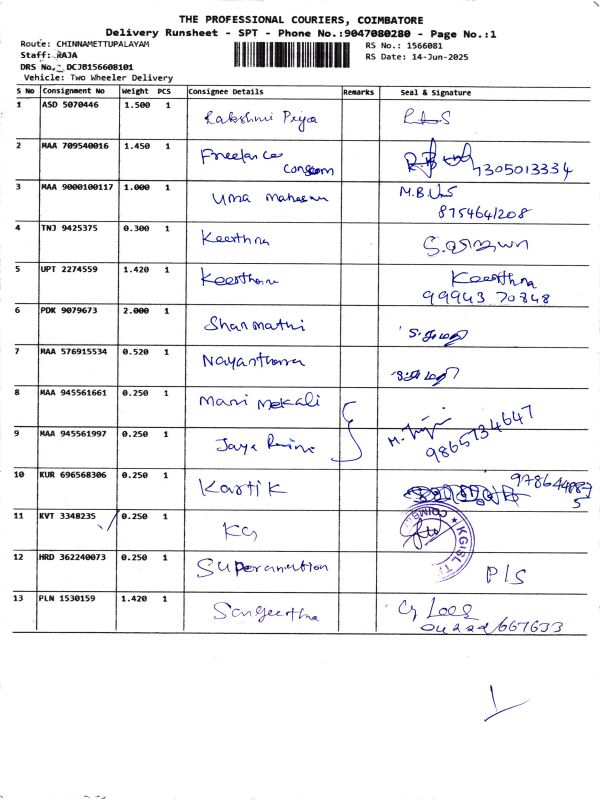 THE PROFESSIONAL COURIERS, COIMBATORE
Delivery Runsheet - SPT - Phone No.:9047080280 - Page No.:1
Route: CHINNAMETTUPALAYAM RS No.: 1566081
Staff: RAJA RS Date: 14-Jun-2025
DRS No.: DCJB156608101
Vehicle: Two Wheeler Delivery
S No Consignment No Weight PCS Consignee Details Remarks Seal & Signature
1 ASD 5070446 1.500 1 Lakshmi Priya
2 MAA 709540016 1.450 1 Freelance 7305013334
3 MAA 9000100117 1.000 1 Uma M.B.
8754641208
4 TNJ 9425375 0.300 1 Keerthna
5 UPT 2274559 1.420 1 Keerthana Keerthna
99943 70848
6 PDK 9079673 2.000 1 Shanmathi
7 MAA 576915534 0.520 1 Nayanthara
8 MAA 945561661 0.250 1 Mani Mekali
9 MAA 945561997 0.250 1 Jaya 9865734647
10 KUR 696568306 0.250 1 Kartik
11 KVT 3348235 0.250 1 KG KGISL
12 HRD 362240073 0.250 1 P/S
13 PLN 1530159 1.420 1 Sangeethna